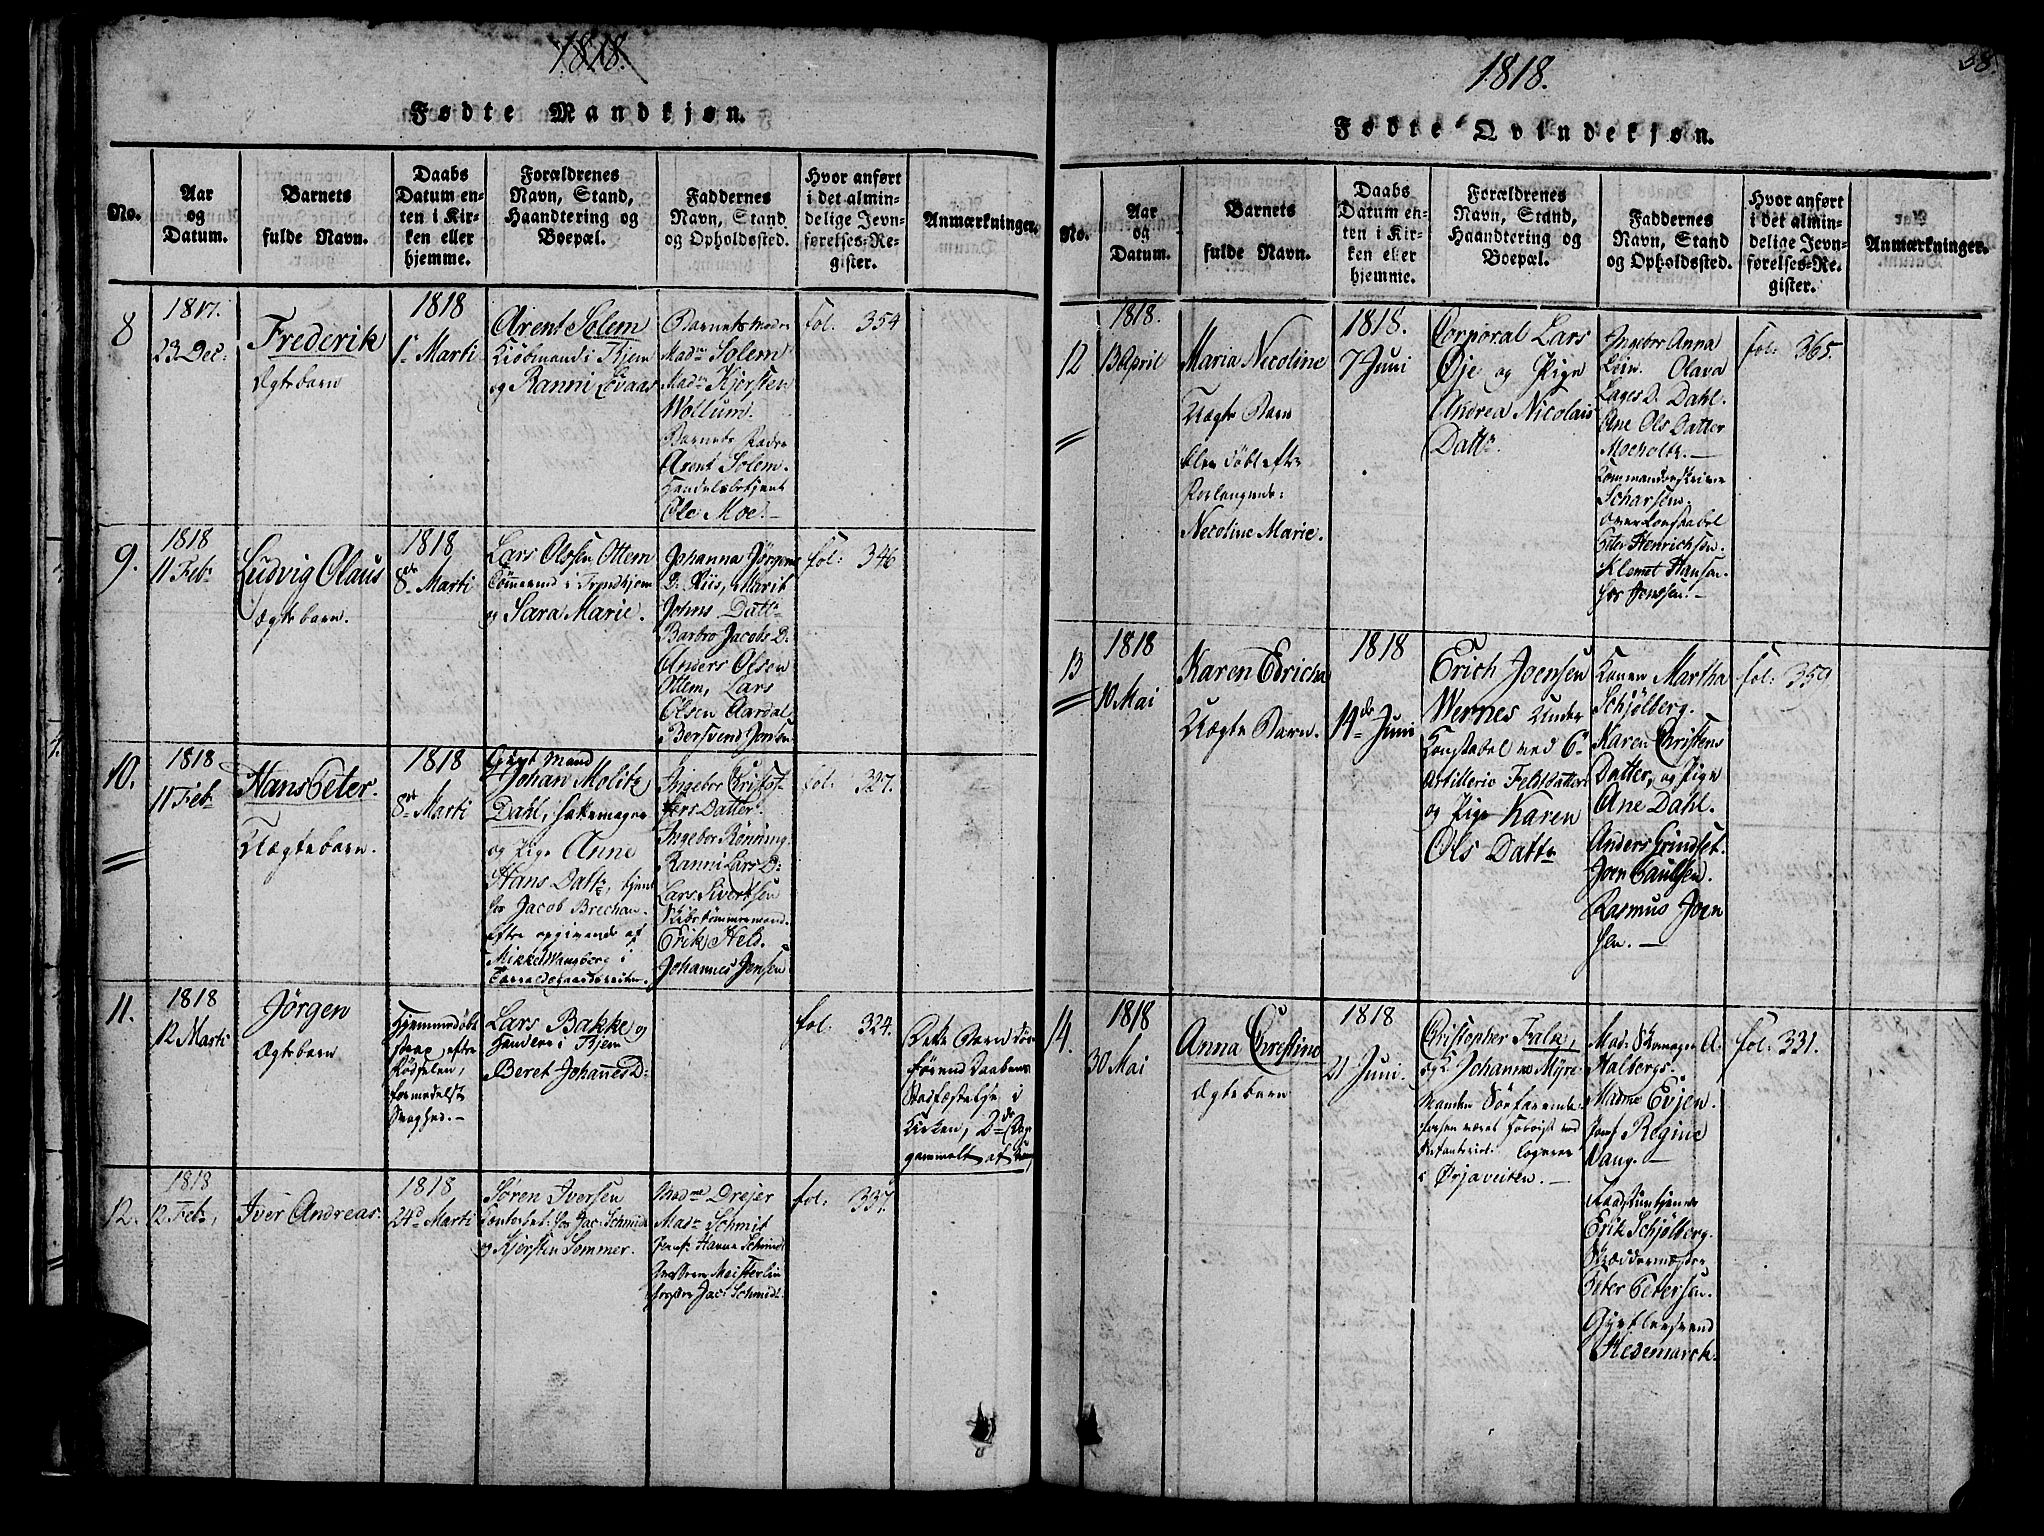 1818.
Fødte Mandkjøn.
No.
Aar
og
Datum.
Barnets
fulde Navn.
Daabs
Datum en-
ten i Kir-
ken eller
hjemme.
Forældrenes
Navn, Stand,
Haandtering og
Boepæl.
Faddernes
Navn, Stand
og Opholdssted.
Hvor anført
i det almin-
delige Jevn-
førelses-Re-
gister.
Anmærkninger.
8
1817.
23 Dec:
Frederik
Ægtebarn
1818
1 Marti
Arent Solem
Kiøbmand i Thjem
og Ranni Løvaas
Barnets Moder
Madm Solem
Madm Kjersten
Wollum.
Barnets Fader
Arent Solem.
Handelsbetjent
Ole Moe. –
fol: 354
9.
1818
11 Feb
Ludvig Olaus
Ægtebarn.
1818
8 Marti
Lars Olssen Ottem
i Trondhjem
og Sara Marie.
Johanna Jørgens
D. Riis, Marit
Johns Datt
Barbro Jacobs D.
Anders Olsen
Ottem, Lars
Olsen Aardal
Bersvend Jonsen
fol: 346
10.
1818
11 Feb
Hans Peter.
Uægtebarn.
1818
8 Marti
Gift Mand
Johan Molitz
Dahl,
og Pige Anne
Hans Datt, tjent
hos Jacob Brechan.
efter opgivende af
Mikkel Wansberg i
Ingebor Christof-
fers Datter.
Ingebor Rønning.
Ranni Lars D:
Lars Sivertsen
Erik Heb.
Johannes Jensen
fol: 327.
11.
1818
12 Marti
Jørgen
Ægtebarn
Hjemmedøbt
strax efter
Fødselen,
formedelst
Svaghed. –
Lars Bakke og
i Thjem
Beret Johannes D:
fol: 324.
Dette Barn døe
førend Daabens
Stadfæstelse i
Kirken, 2 Dag
gammelt
12.
1818
12 Feb,
Iver Andreas.
1818
24 Marti
Søren Iversen
hos Jac. Schmidt
og Kjersten Sommer.
Madm Drejer
Mad Schmit
Jomf. Hanna Schmidt
Meisterlin
Jac. Schmidt.
fol: 337.
1818.
38.
Fødte Qvindekjøn.
No.
Aar
og
Datum.
Barnets
fulde Navn.
Daabs
Datum en-
ten i Kir-
ken eller
hjemme.
Forældrenes
Navn, Stand,
Haandtering og
Boepæl.
Faddernes
Navn, Stand
og Opholdssted.
Hvor anført
i det almin-
delige Jevn-
førelses-Re-
gister.
Anmærkninger.
12
1818.
13 April
Maria Nicoline
Uægte Barn
blev døbt efter
Forlangende:
Nicoline Marie.
1818.
7 Juni
Corporal Lars
Øje og Pige
Andrea Nicolais
Datt
Ingebor Anna
Lein. Olava
Lages D. Dahl.
Ane Ols Datter
Moeholte. –
Scharsem.
Peter Henrichsen.
Klemet Hansen.
Jonssen. –
fol: 365.
13
1818
10 Mai
Karen Ericha
Uægte Barn.
1818
14 Juni
Erich Joensen
Wernes Under
Konstabel ved 6
Artillerie
og Pige Karen
Ols Datt
Konen Martha
Schjølberg.
Karen Christens
Datter, og Pige
Ane Dahl.
Anders Grindset.
Joen Paulsen.
Rasmus Joen
sen. –
fol: 359
14.
1818
30 Mai
Anna Chrestine
Ægtebarn
1818
21 Juni.
Christopher Falk,
og K. Johanna Myre.
Manden
i Ørjaveiten. –
Mad: A.
Halbergs.
Madm Evjen.
Jomf Regine
Vang. –
Erik Schjølberg.
Skreddermester
Peter Petersen.
Hedemarck.
fol: 331.